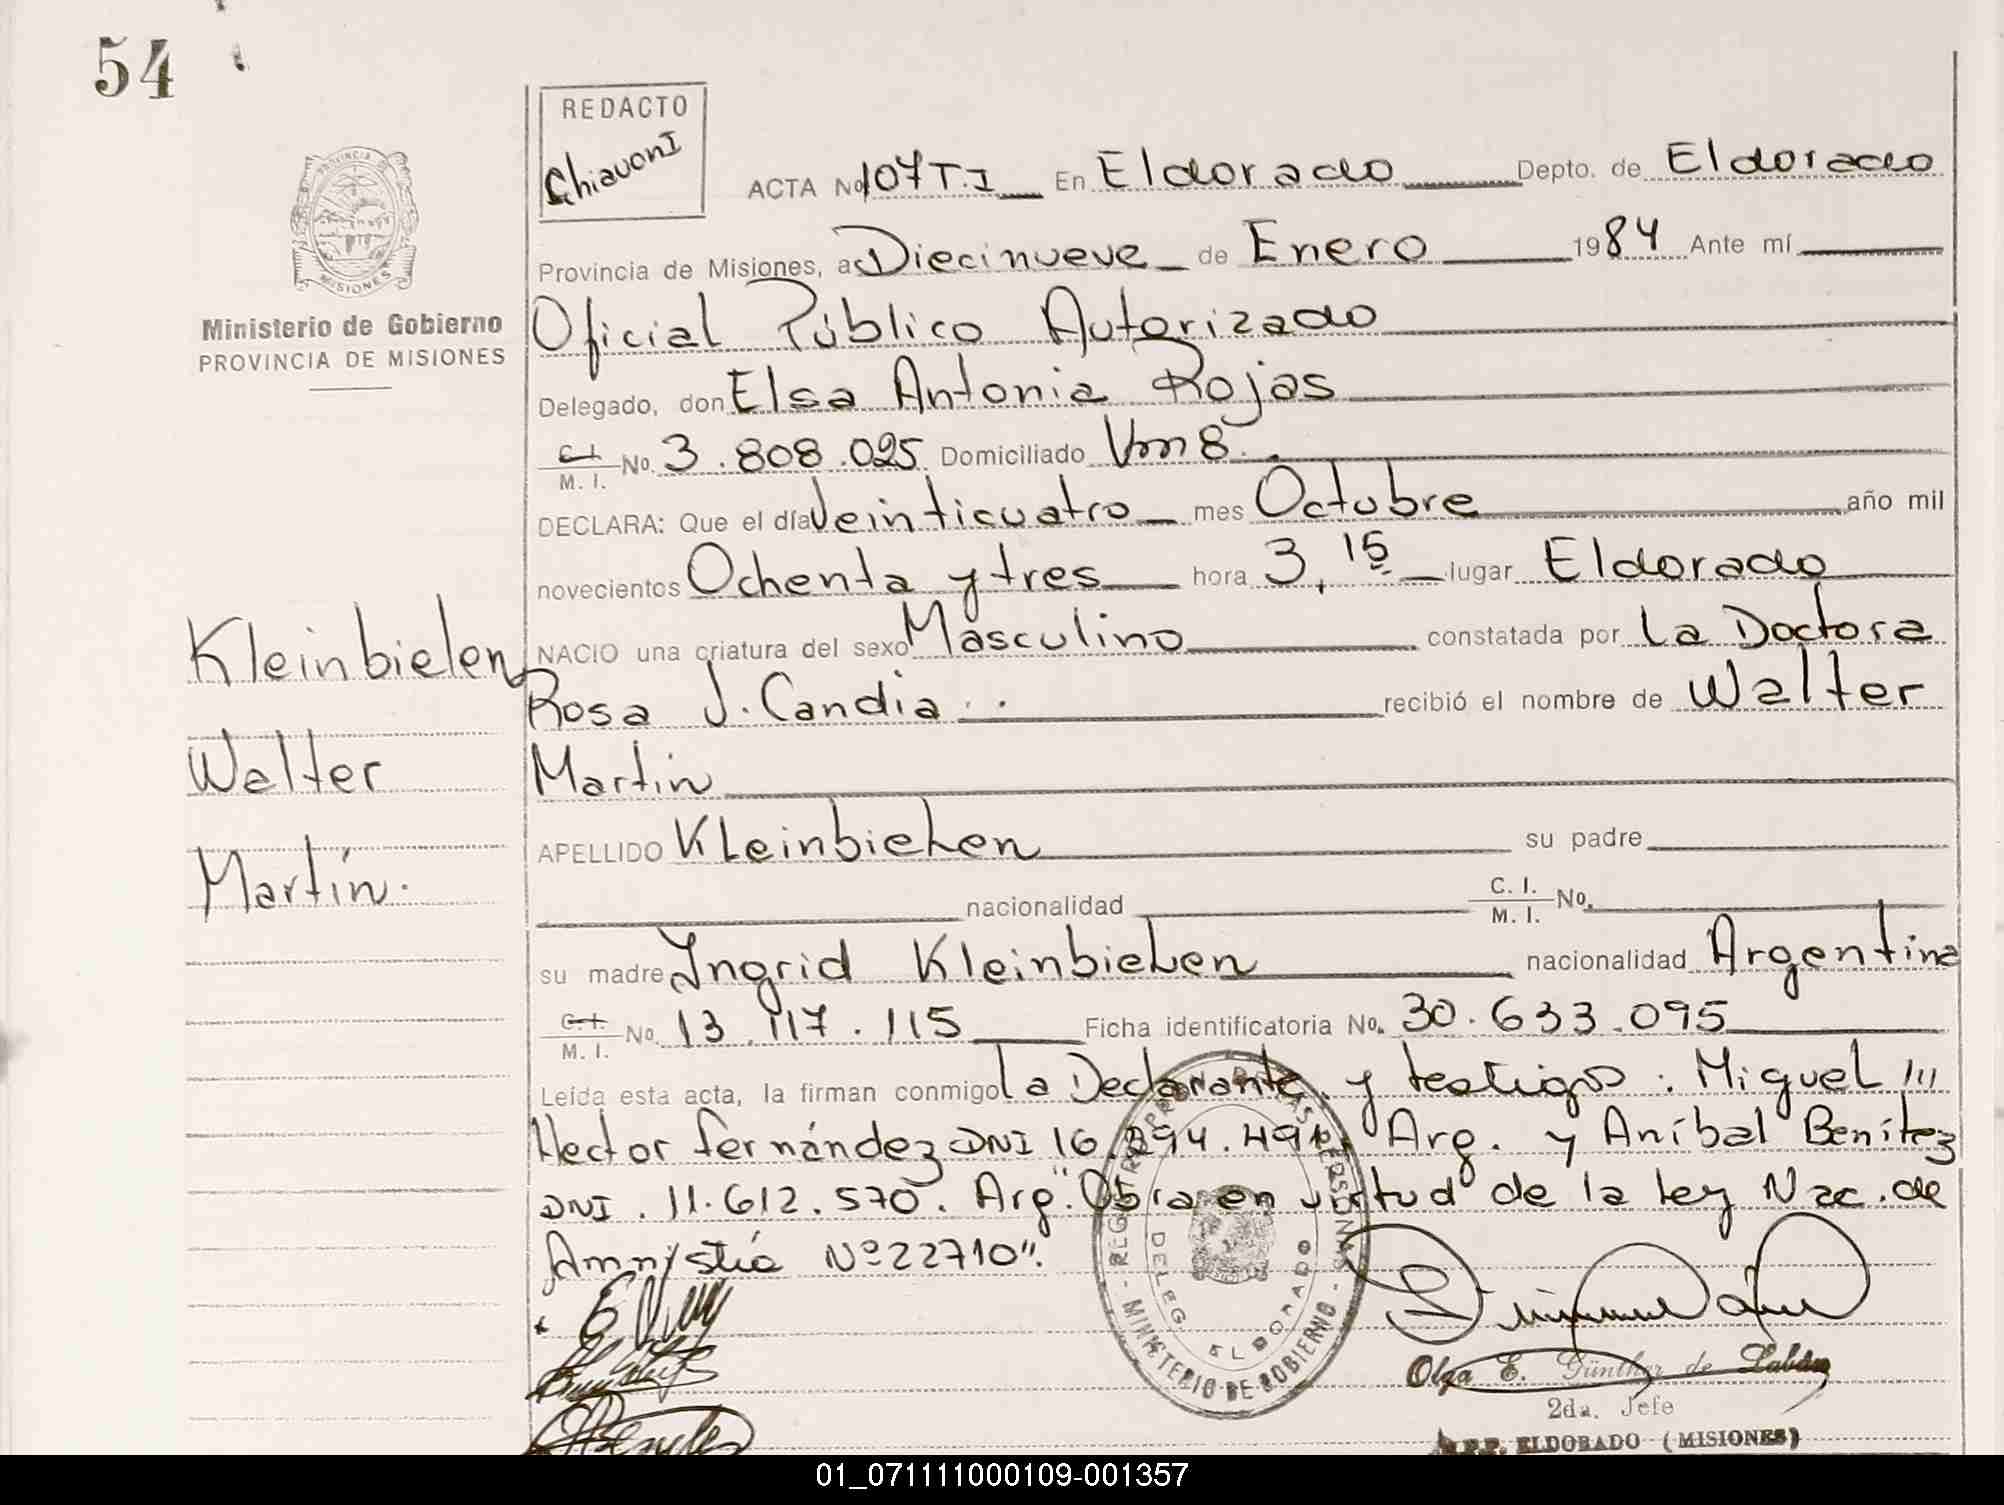 54
REDACTO
Chiavoni
ACTA No 107 T.I En Eldorado Depto. de Eldorado
Provincia de Misiones, a Diecinueve de Enero 1984 Ante mí
Oficial Público Autorizado
Delegado, don Elsa Antonia Rojas
C.I. M. I. No. 3.808.025 Domiciliado Km 8.
DECLARA: Que el día Veinticuatro mes Octubre año mil
novecientos Ochenta y tres hora 3,15 lugar Eldorado
NACIO una criatura del sexo Masculino constatada por La Doctora
Rosa J. Candia.. recibió el nombre de Walter
Martin
APELLIDO Kleinbielen su padre
nacionalidad C. I. M. I. No.
su madre Ingrid Kleinbielen nacionalidad Argentina
C.I. M. I. No. 13.117.115 Ficha identificatoria No. 30.633.095
Leída esta acta, la firman conmigo La Declarante y testigos: Miguel
Hector Fernández DNI 16.894.491 Arg. y Aníbal Benítez
DNI. 11.612.570. Arg. "Obra en virtud de la Ley Nac. de
Amnystía Nº 22710".
PROVINCIA DE MISIONES
Ministerio de Gobierno
PROVINCIA DE MISIONES
Kleinbielen
Walter
Martín.
REGISTRO PROV. DE LAS PERSONAS
MINISTERIO DE GOBIERNO
DELEG. ELDORADO
Olga E. Günther de Labán
2da. Jefe
R.P.P. ELDORADO (MISIONES)
01_071111000109-001357